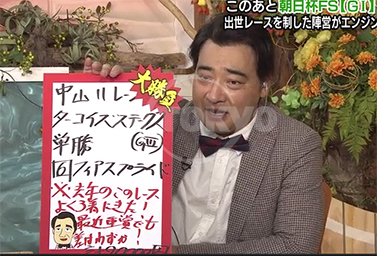 このあと朝日杯FS【GⅠ】
出世レースを制した陣営がエンジン
大勝負
中山11レース
ターコイズステークス
単勝 GⅢ
フィアスプライド
※去年のこのレース
よく3着にきた!
最近重賞でも
差わずか!
TOKYO